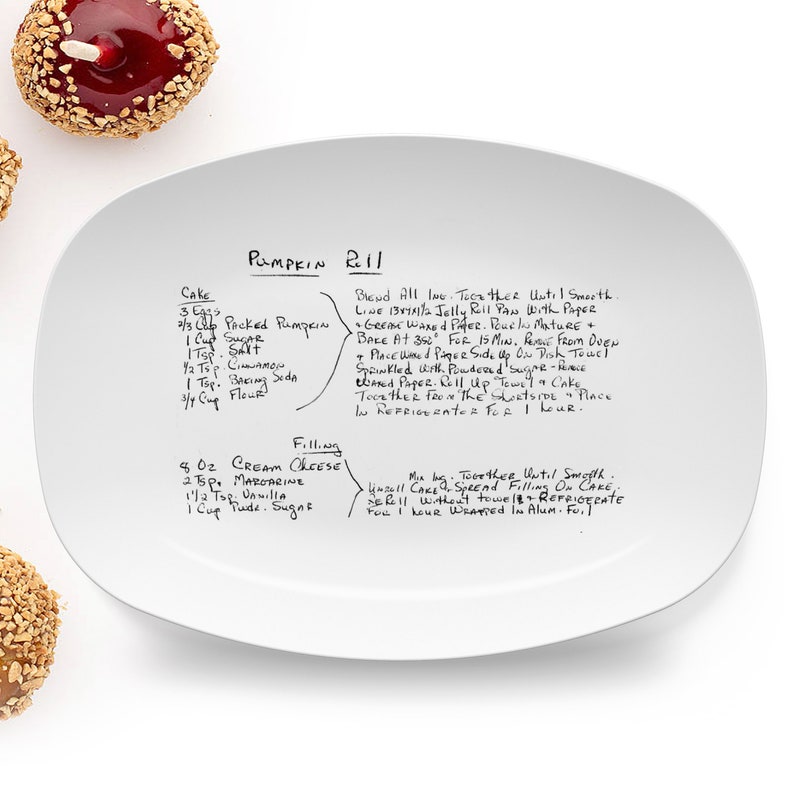 Pumpkin Roll
Cake
3 Eggs
2/3 Cup Packed Pumpkin
1 Cup Sugar
1 Tsp. Salt
1/2 Tsp. Cinnamon
1 Tsp. Baking Soda
3/4 Cup Flour
Blend All Ing. Together Until Smooth.
Line 13x9x1 1/2 Jelly Roll Pan With Paper
+ Grease Waxed Paper. Pour In Mixture +
Bake At 350° For 15 Min. Remove From Oven
+ Place Waxed Paper Side Up On Dish Towel
Sprinkled With Powdered Sugar - Remove
Waxed Paper. Roll Up Towel + Cake
Together From The Shortside + Place
In Refrigerator For 1 Hour.
Filling
8 Oz Cream Cheese
2 Tsp. Margarine
1 1/2 Tsp. Vanilla
1 Cup Pwdr. Sugar
Mix Ing. Together Until Smooth.
Unroll Cake + Spread Filling On Cake.
ReRoll Without Towel + Refrigerate
For 1 Hour Wrapped In Alum. Foil